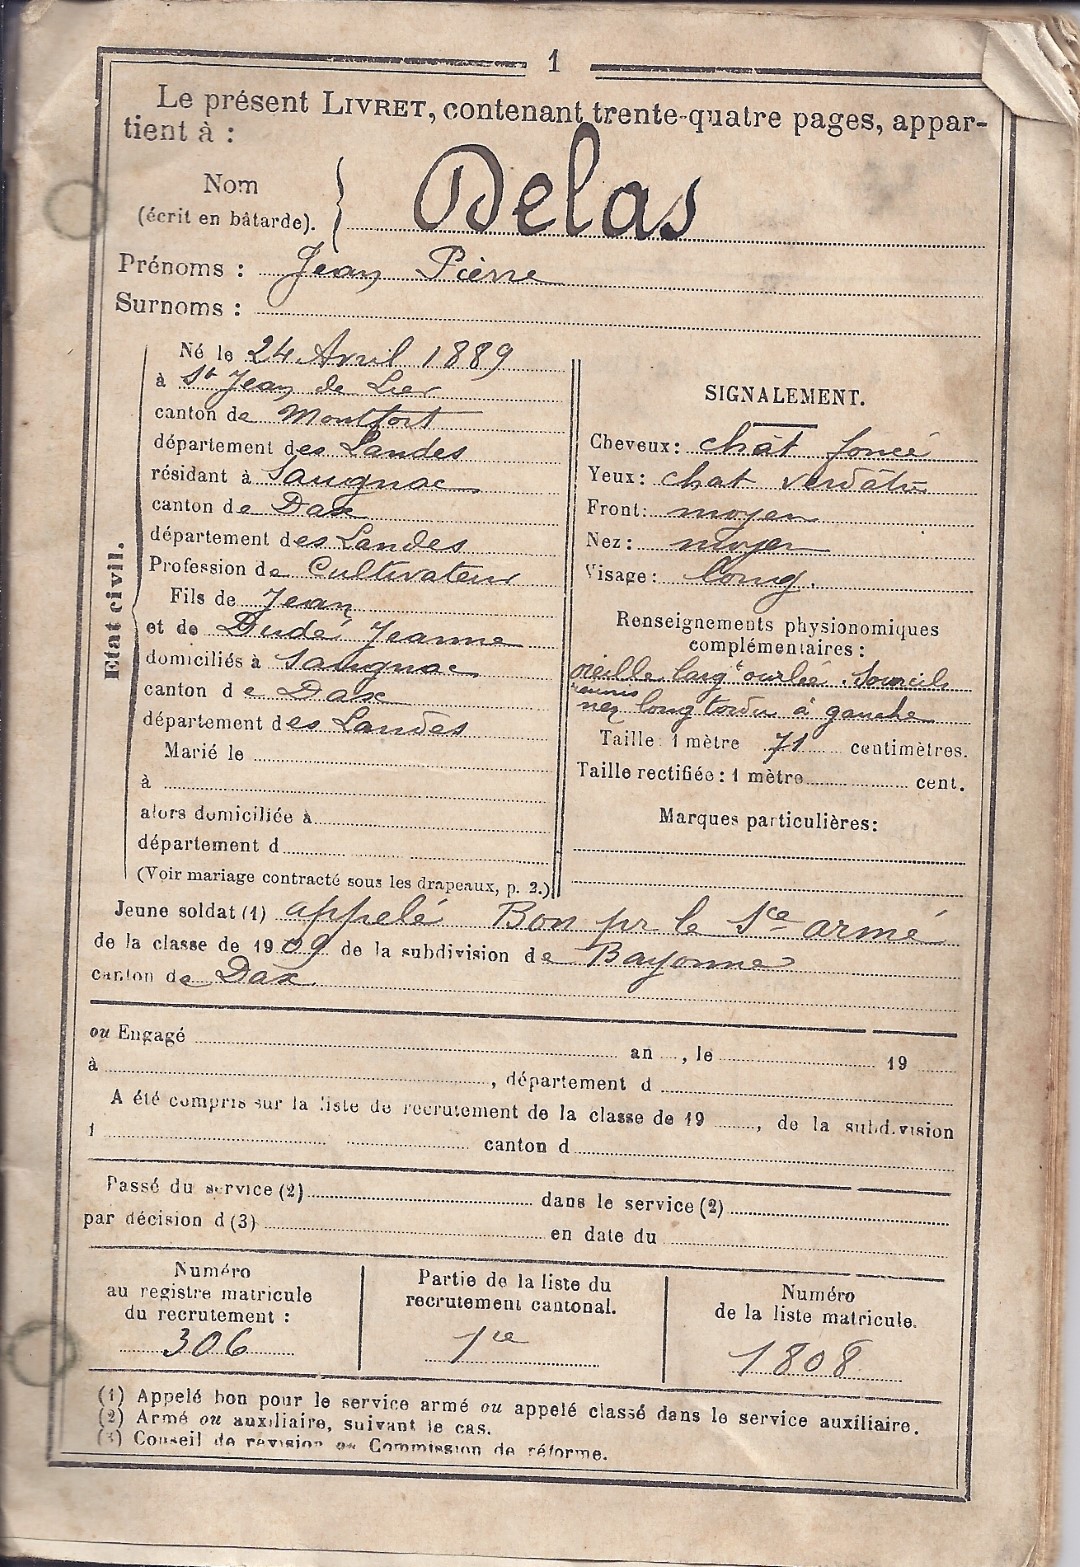 1
Le présent LIVRET, contenant trente-quatre pages, appar-
tient à :
Nom
(écrit en bâtarde).
Delas
Prénoms : Jean Pierre
Surnoms :
Etat civil.
Né le 24 Avril 1889
à St Jean de Lier
canton de Montfort
département des Landes
résidant à Saugnac
canton de Dax
département des Landes
Profession de Cultivateur
Fils de Jean
et de Dudé Jeanne
domiciliés à Saugnac
canton de Dax
département des Landes
Marié le
à
alors domiciliée à
département d
(Voir mariage contracté sous les drapeaux, p. 2.)
SIGNALEMENT.
Cheveux: chât foncé
Yeux: chat verdâtre
Front: moyen
Nez: moyen
Visage: long.
Renseignements physionomiques
complémentaires :
oreille largt ourlée. Sourcils
réunis
nez long tordu à gauche
Taille 1 mètre 71 centimètres.
Taille rectifiée : 1 mètre cent.
Marques particulières:
Jeune soldat (1) appelé Bon pr le sce armé
de la classe de 1909 de la subdivision de Bayonne
canton de Dax
ou Engagé an , le 19
à , département d
A été compris sur la liste de recrutement de la classe de 19 , de la subdivision
canton d
Passé du service (2) dans le service (2)
par décision d (3) en date du
Numéro
au registre matricule
du recrutement :
306
Partie de la liste du
recrutement cantonal.
1re
Numéro
de la liste matricule.
1808
(1) Appelé bon pour le service armé ou appelé classé dans le service auxiliaire.
(2) Armé ou auxiliaire, suivant le cas.
(3) Conseil de révision ou Commission de réforme.